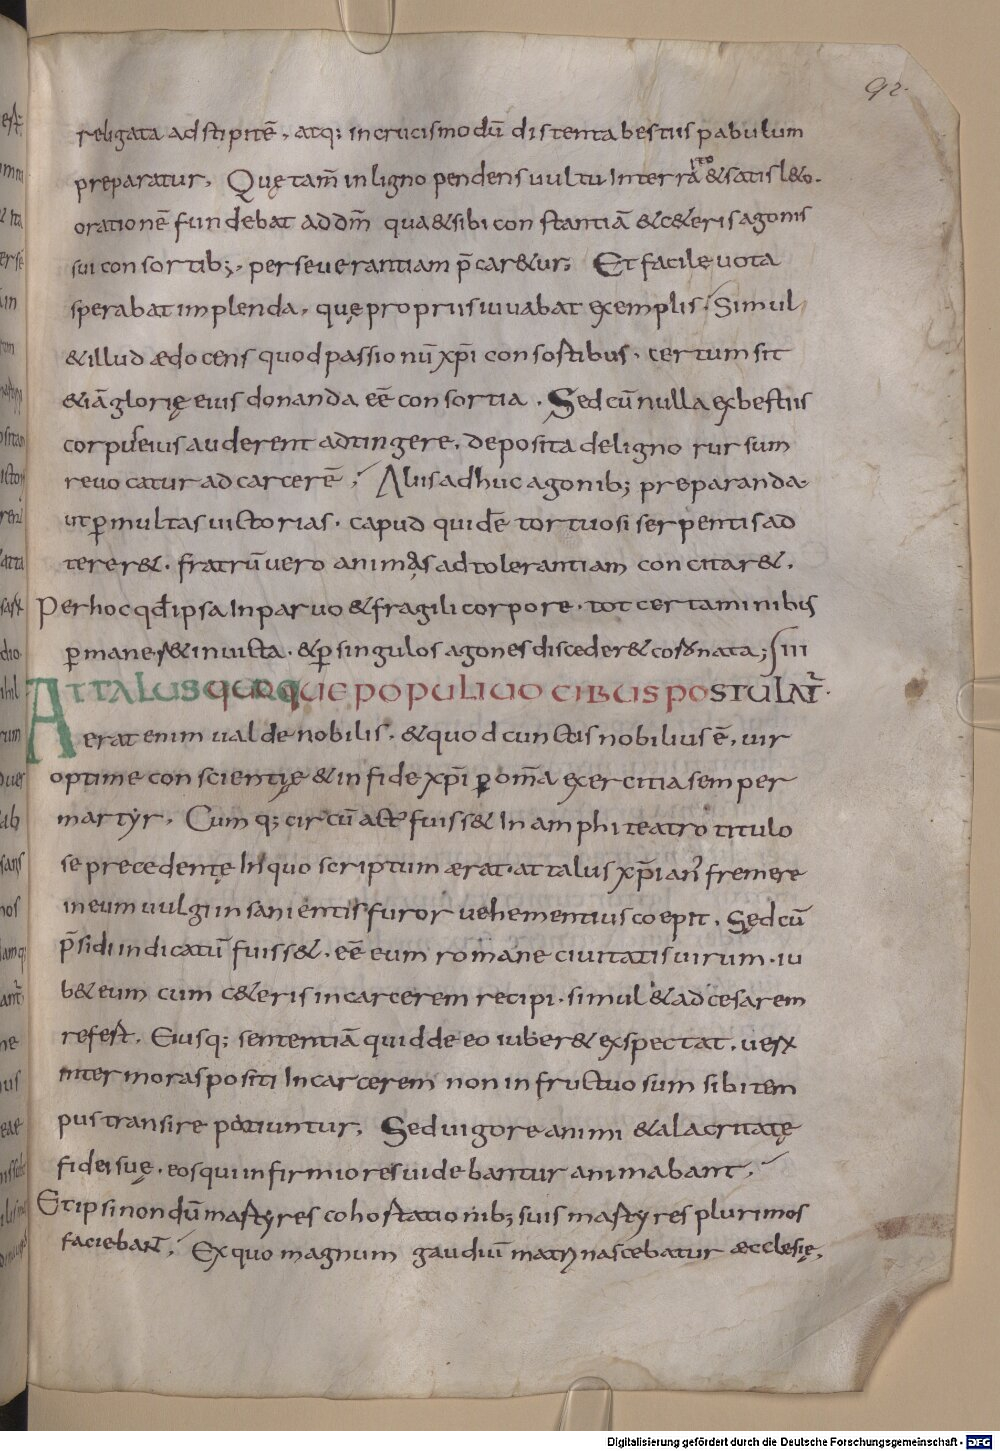 92.
religata ad stipitē, atq; in crucis modū distenta bestiis pabulum
preparatur, Quę tam̄ in ligno pendens uultu Interrito & satis l&o.
orationē fundebat ad dn̄m qua & sibi constantiā & c&eris agonis
sui consortib; perseuerantiam p̄car&ur; Et facile uota
sperabat implenda, quę propriis iuuabat exemplis. Simul
& illud ædocens quod passionū xp̄i consortibus, certum sit
& iā glorię eius donanda eē consortia. Sed cū nulla ex bestiis
corpus eius auderent adtingere, deposita de ligno rursum
reuocatur ad carcerē, Aliis adhuc agonib; preparanda
ut ꝑ multas uictorias, capud quidē tortuosi serpentis ad
terer&, fratrū uero animas ad tolerantiam concitar&,
Per hoc qđ ipsa In paruo & fragili corpore, tot certaminibus
ꝑmaner& inuicta, & ꝑ singulos agones disceder& coronata;
ATTALUS QUOQUE POPULI UOCIBUS POSTULAT̄.
erat enim ualde nobilis, & quod cunctis nobilius ē, uir
optime conscientię & in fide xp̄i ꝑ om̄a exercitia semper
martyr, Cumq; circūact' fuiss& In amphiteatro titulo
se precedentę In quo scriptum ærat, attalus xp̄ian' fremere
in eum uulgi insanientis furor uehementius coepit, Sed cū
p̄sidi indicatū fuiss&, eē eum romane ciuitatis uirum, iu
b& eum cum c&eris in carcerem recipi, simul & ad cesarem
refert, Eiusq; sententiā quid de eo iuber& exspectat, uerum
inter moras positi In carcerem non infructuosum sibi tem
pus transire patiuntur, Sed uigore animi & alacritatę
fidei suę, eos qui infirmiores uidebantur animabant,
Et ipsi nondū martyres cohortationib; suis martyres plurimos
faciebant, Ex quo magnum gaudiū matri nascebatur æcclesię,
Digitalisierung gefördert durch die Deutsche Forschungsgemeinschaft - DFG